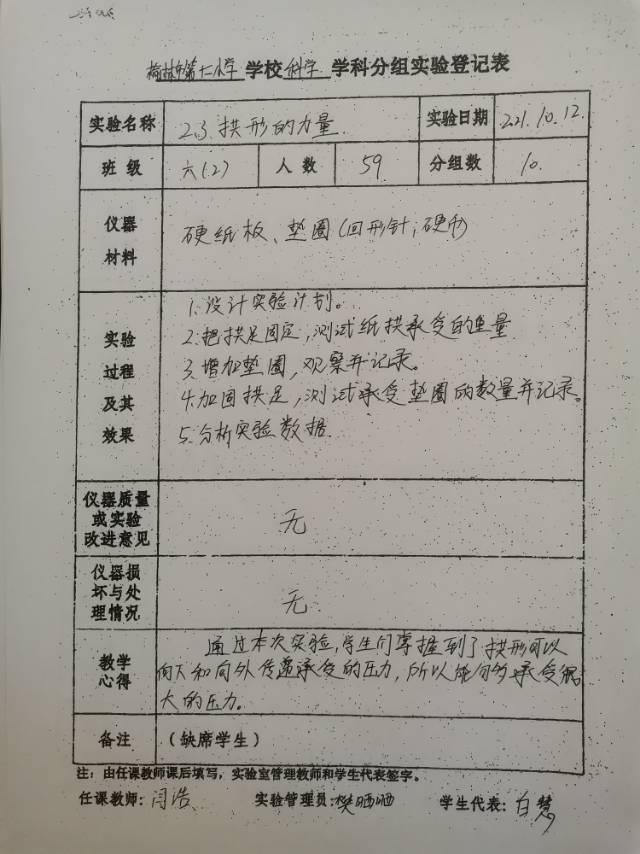 榆林市第十二小学 学校 科学 学科分组实验登记表
实验名称 2.3 拱形的力量 实验日期 2021.10.12.
班 级 六(2) 人 数 59 分组数 10.
仪器材料 硬纸板、垫圈(回形针,硬币)
实验过程及其效果
1.设计实验计划。
2.把拱足固定,测试纸拱承受的重量
3.增加垫圈,观察并记录。
4.加固拱足,测试承受垫圈的数量并记录。
5.分析实验数据.
仪器质量或实验改进意见 无
仪器损坏与处理情况 无.
教学心得
通过本次实验,学生们掌握到了拱形可以
向下和向外传递承受的压力,所以能够承受很
大的压力。
备注 (缺席学生)
注:由任课教师课后填写,实验室管理教师和学生代表签字。
任课教师:闫浩 实验管理员:樊晒晒 学生代表:白慧